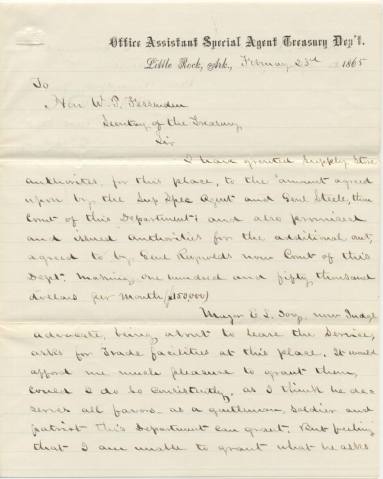 Office Assistant Special Agent Treasury Dep't.
Little Rock, Ark., February 23d 1865
To
Hon W. P. Fessenden
Secretary of the Treasury
Sir
I have granted Supply Store
authorities, for this place, to the amount agreed
upon by the Sup Spec Agent and Genl Steele, then
Comt of this Department and also promised
and issued authorities for the additional amt,
agreed to by Genl Reynolds now Comt of this
Dept. Making one hundred and fifty thousand
dollars per Month ($150,000)
Major now Judge
Advocate, being about to leave the Service,
asks for Trade facilities at this place. It would
afford me much pleasure to grant them,
could I do so consistently, as I think he de-
serves all favors as a gentleman, soldier and
patriot this Department can grant. But feeling
that I am unable to grant what he asks